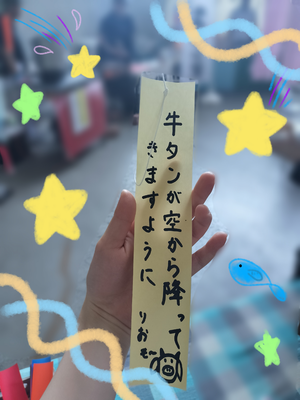 牛タンが空から降って
きますように
りおぞー